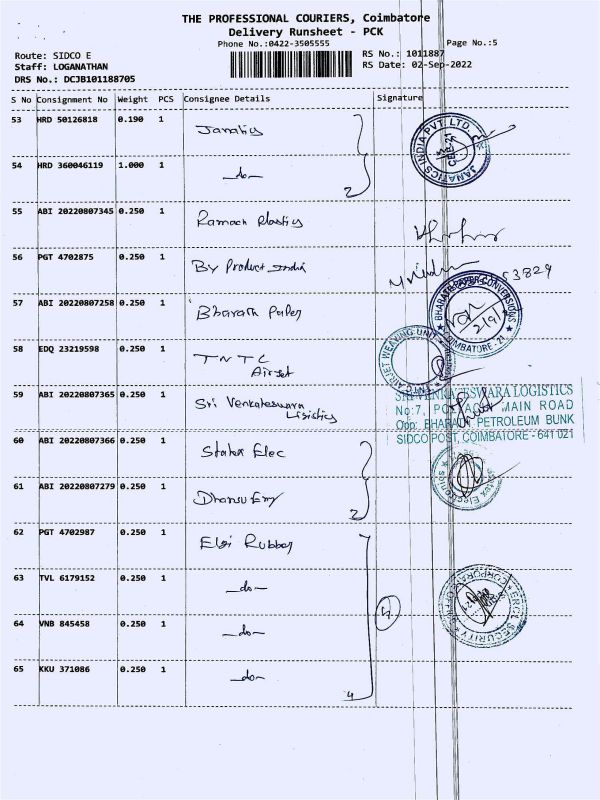 THE PROFESSIONAL COURIERS, Coimbatore
Delivery Runsheet - PCK
Phone No.:0422-3505555
Page No.:5
Route: SIDCO E
RS No.: 1011887
Staff: LOGANATHAN
RS Date: 02-Sep-2022
DRS No.: DCJB101188705
S No Consignment No Weight PCS Consignee Details Signature
53 HRD 50126818 0.190 1 Janatics
JANATICS INDIA PVT. LTD.
54 HRD 360046119 1.000 1 -do-
2
55 ABI 20220807345 0.250 1 Ramach Plastics
56 PGT 4702875 0.250 1 By Product India
53829
57 ABI 20220807258 0.250 1 Bharath Paper
BHARATH PAPER CONVERSIONS
COIMBATORE - 21
2/9/
58 EDQ 23219598 0.250 1 TNTC
Airjet
TNTC AIRJET WEAVING UNIT
59 ABI 20220807365 0.250 1 Sri Venkateswara
Logistics
SRI VENKATESWARA LOGISTICS
No:7, MAIN ROAD
Opp: BHARAT PETROLEUM BUNK
SIDCO POST, COIMBATORE - 641 021
60 ABI 20220807366 0.250 1 Statex Elec
Statex Electronics
61 ABI 20220807279 0.250 1 Dhansu Eng
2
62 PGT 4702987 0.250 1 Elgi Rubber
63 TVL 6179152 0.250 1 -do-
SECURITY
CORPORATE OFFICE
64 VNB 845458 0.250 1 -do-
65 KKU 371086 0.250 1 -do-
4